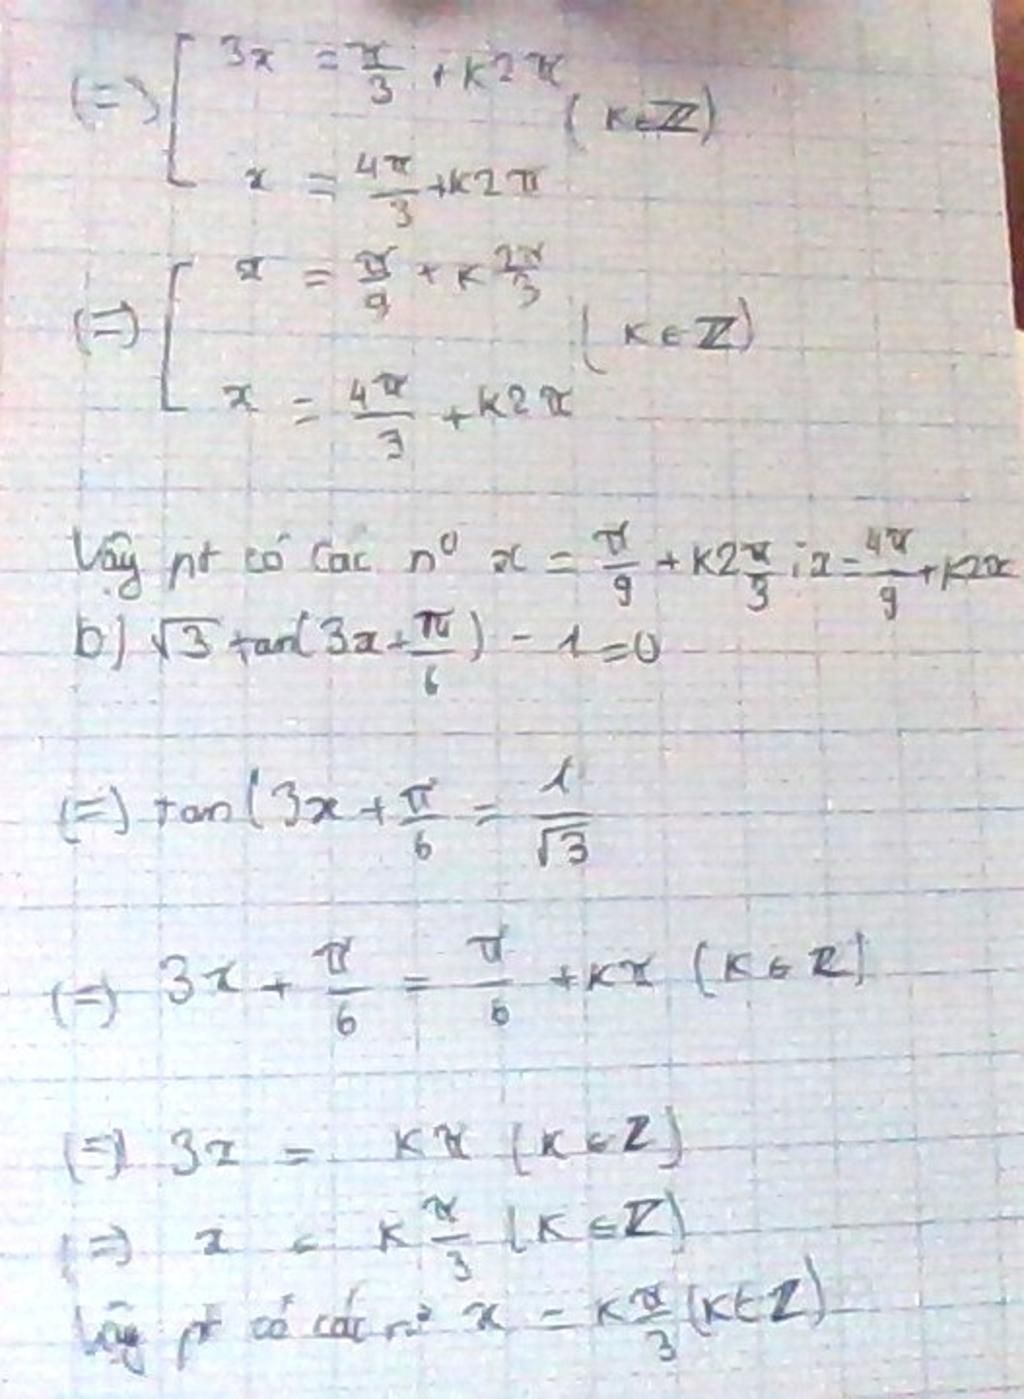 (=) [ 3x = π/3 + k2π
(k∈ℤ)
x = 4π/3 + k2π
(=) [ x = π/9 + k 2π/3
(k∈ℤ)
x = 4π/3 + k2π
Vậy pt có các n⁰ x = π/9 + k2π/3 ; x = 4π/9 + k2π
b) √3 tan(3x + π/6) - 1 = 0
(=) tan(3x + π/6 = 1/√3
(=) 3x + π/6 = π/6 + kπ (k∈ℤ)
(=) 3x = kπ (k∈ℤ)
(=) x = k π/3 (k∈ℤ)
Vậy pt có các n⁰ x = k π/3 (k∈ℤ)